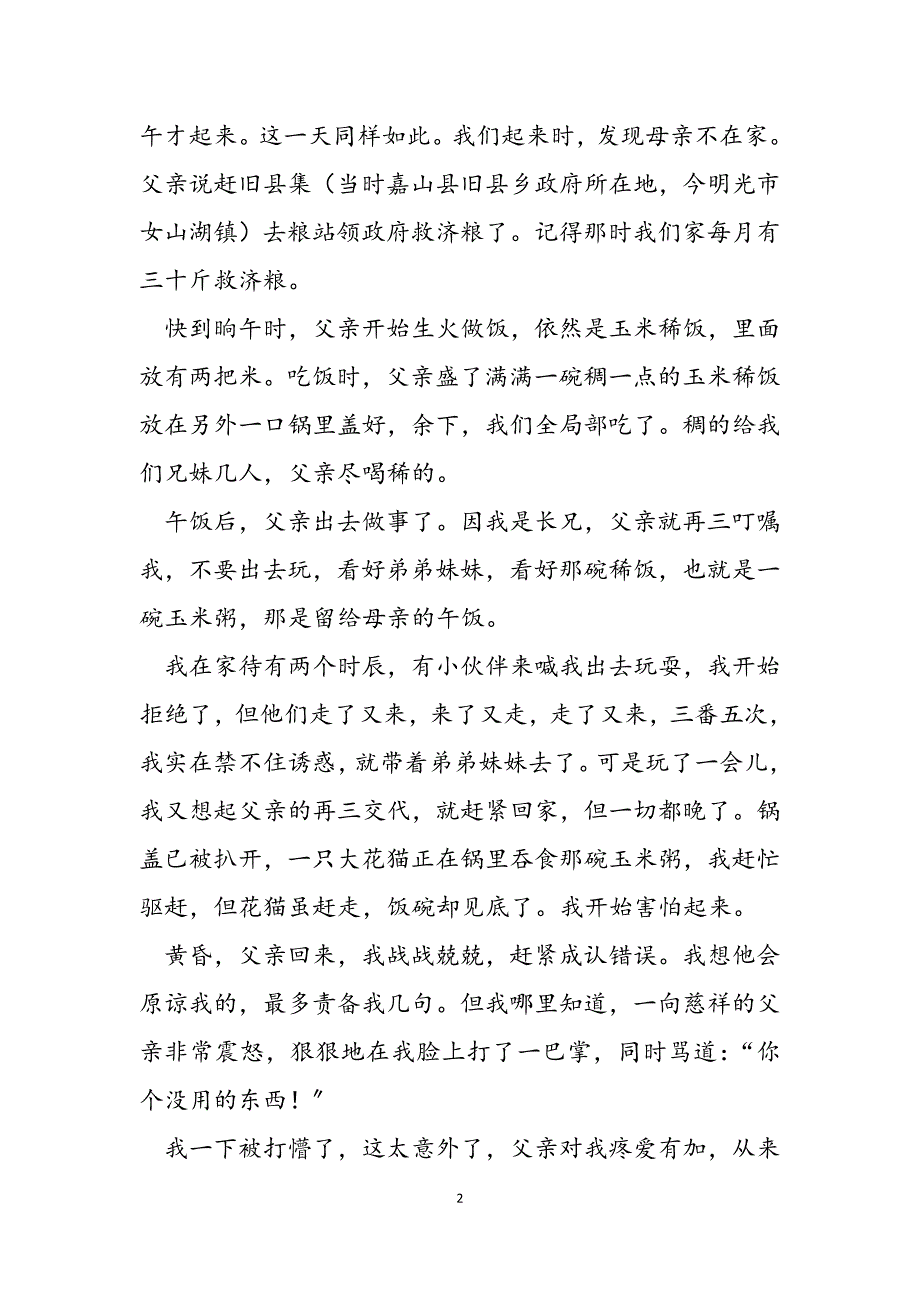 午才起来。这一天同样如此。我们起来时，发现母亲不在家。
父亲说赶旧县集（当时嘉山县旧县乡政府所在地，今明光市
女山湖镇）去粮站领政府救济粮了。记得那时我们家每月有
三十斤救济粮。
快到晌午时，父亲开始生火做饭，依然是玉米稀饭，里面
放有两把米。吃饭时，父亲盛了满满一碗稠一点的玉米稀饭
放在另外一口锅里盖好，余下，我们全局部吃了。稠的给我
们兄妹几人，父亲尽喝稀的。
午饭后，父亲出去做事了。因我是长兄，父亲就再三叮嘱
我，不要出去玩，看好弟弟妹妹，看好那碗稀饭，也就是一
碗玉米粥，那是留给母亲的午饭。
我在家待有两个时辰，有小伙伴来喊我出去玩耍，我开始
拒绝了，但他们走了又来，来了又走，走了又来，三番五次，
我实在禁不住诱惑，就带着弟弟妹妹去了。可是玩了一会儿，
我又想起父亲的再三交代，就赶紧回家，但一切都晚了。锅
盖已被扒开，一只大花猫正在锅里吞食那碗玉米粥，我赶忙
驱赶，但花猫虽赶走，饭碗却见底了。我开始害怕起来。
黄昏，父亲回来，我战战兢兢，赶紧成认错误。我想他会
原谅我的，最多责备我几句。但我哪里知道，一向慈祥的父
亲非常震怒，狠狠地在我脸上打了一巴掌，同时骂道：“你
个没用的东西！〞
我一下被打懵了，这太意外了，父亲对我疼爱有加，从来
2